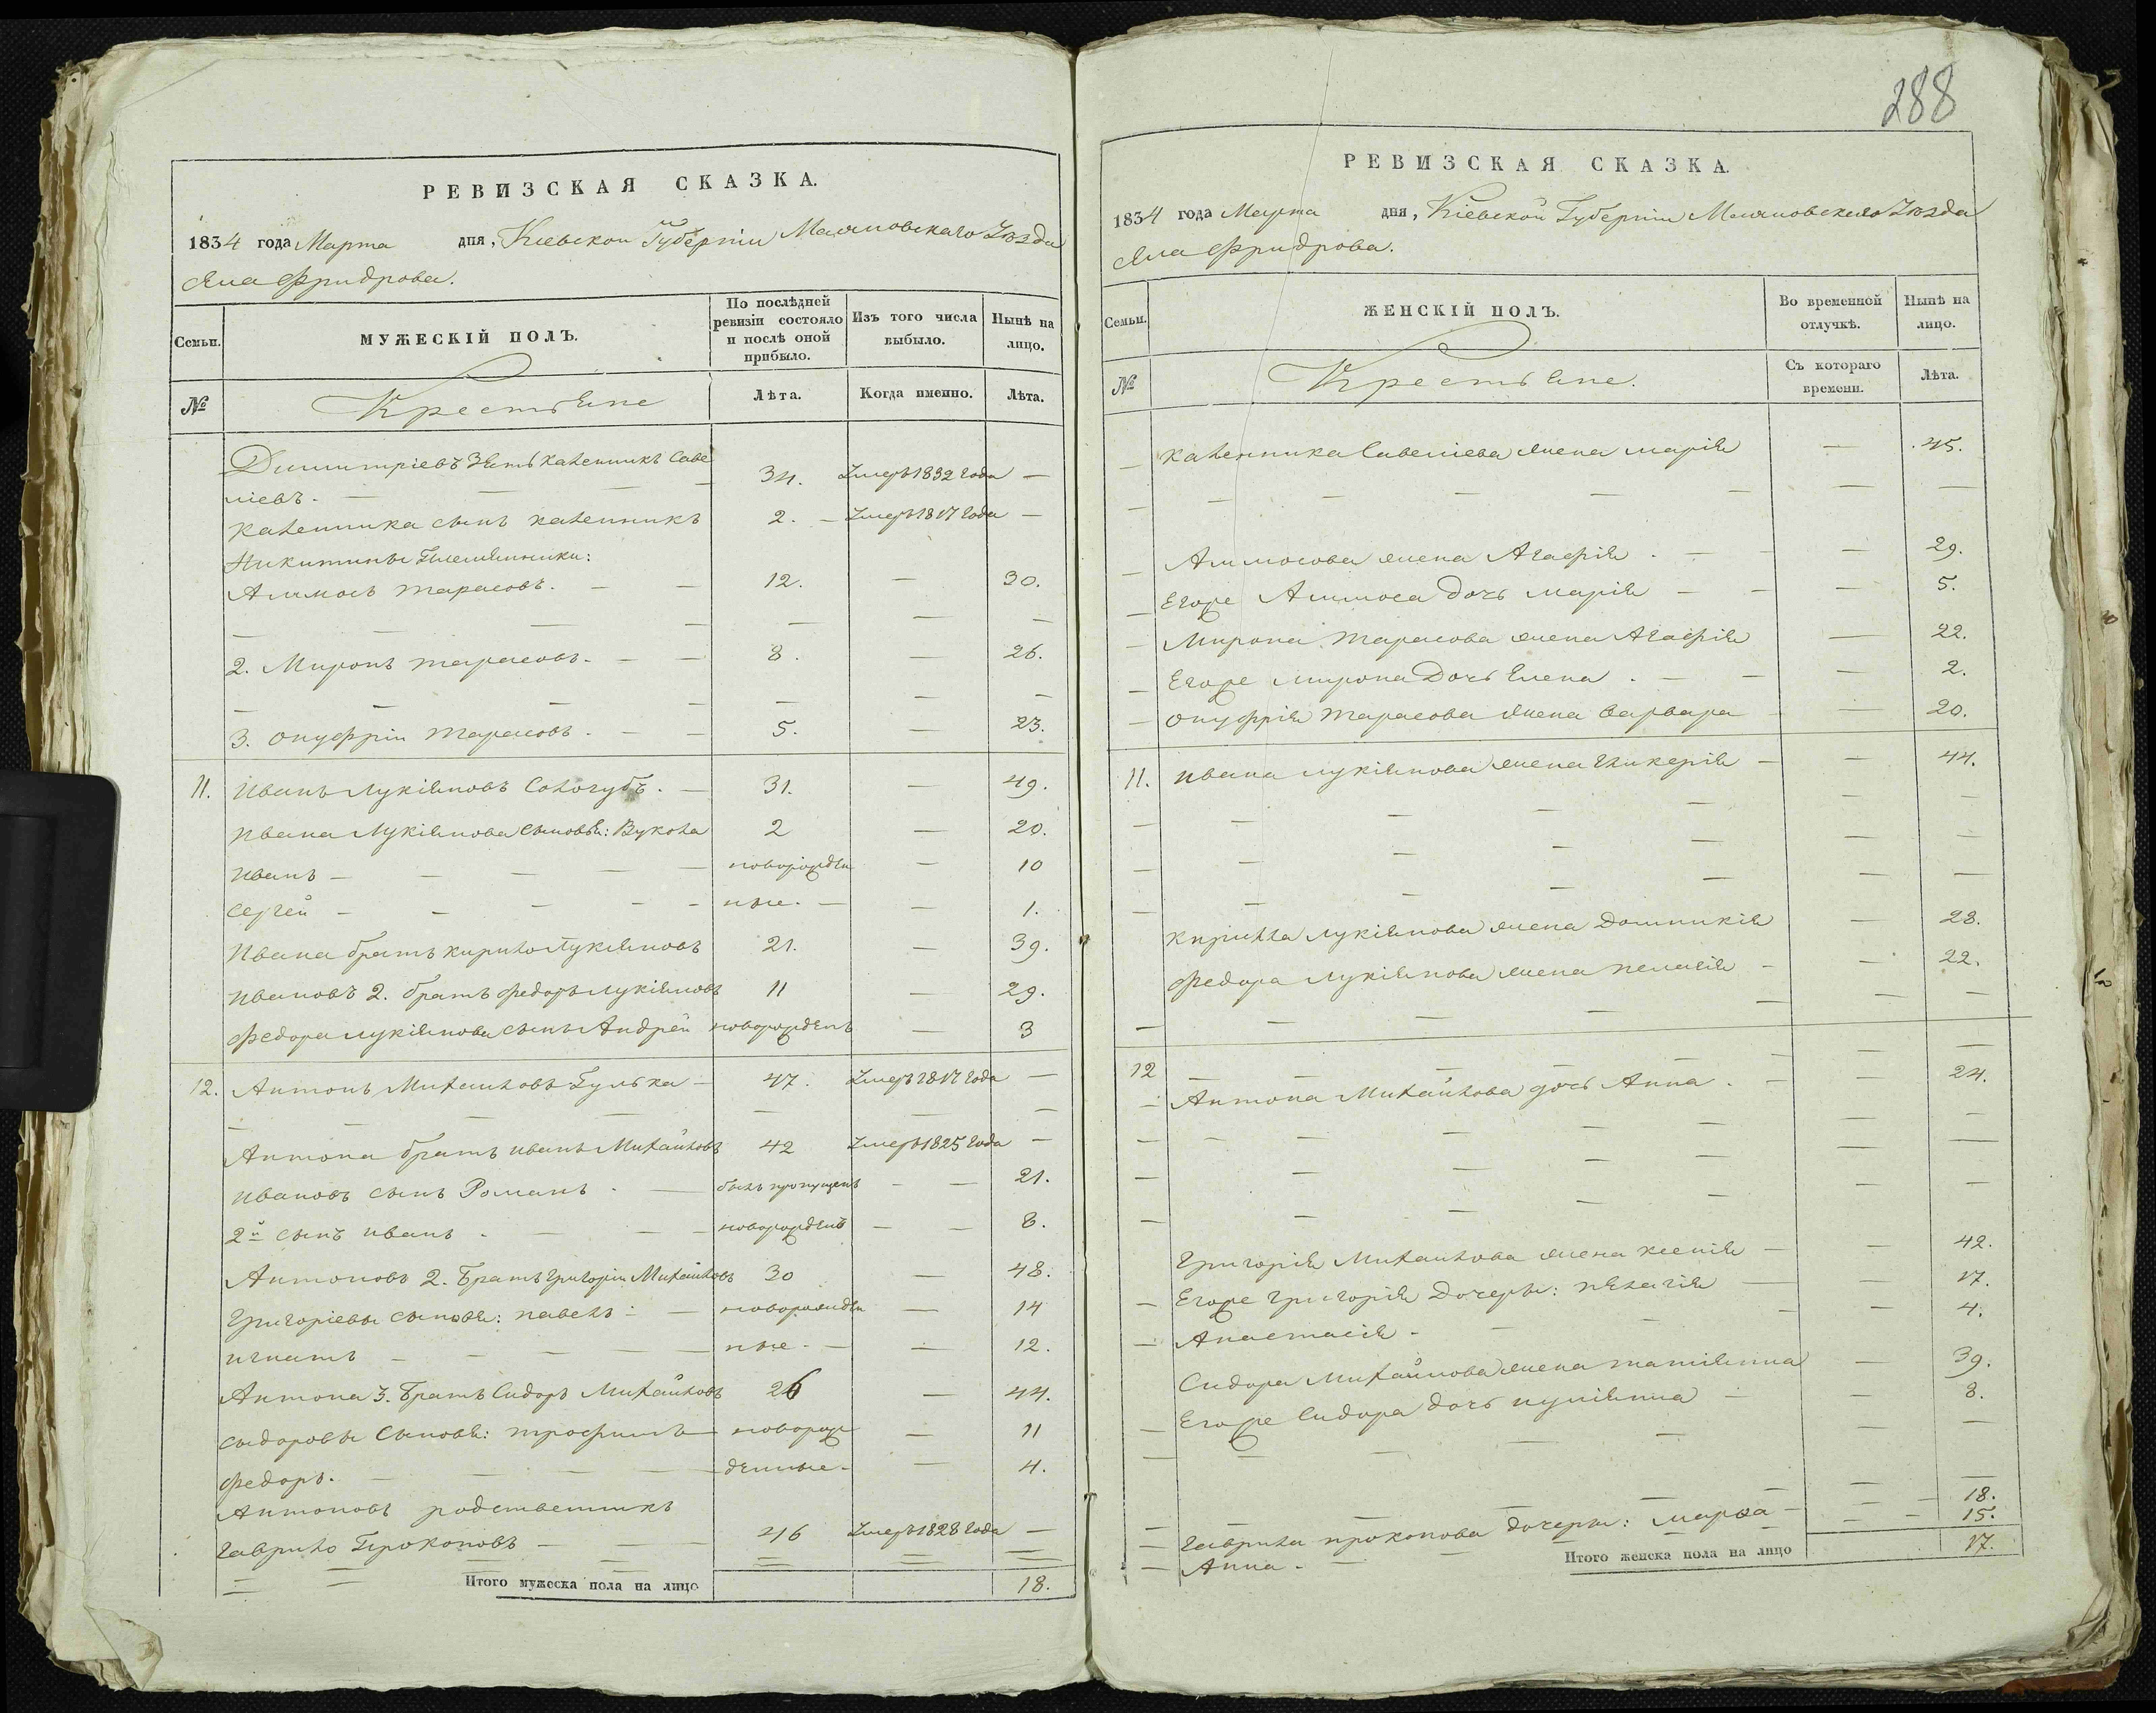 288
РЕВИЗСКАЯ СКАЗКА.
1834 года Марта дня, Кіевской Губерніи Махновскаго Уѣзда
Села Фридрова.
Семьи. МУЖЕСКІЙ ПОЛЪ. По послѣдней ревизіи состояло и послѣ оной прибыло. Изъ того числа выбыло. Нынѣ на лицо.
№ Крестьяне Лѣта. Когда именно. Лѣта.
Димитріевъ зять Каленникъ Саве 34. Умеръ 1832 года —
ліевъ. — — —
Каленника сынъ Каленникъ 2. — Умеръ 1817 года —
Никитины Племянники:
Аммосъ Тарасовъ. — — 12. — 30.
— — — — — — —
2. Миронъ Тарасовъ. — — 8. — 26.
— — — — — — —
3. Онуфрій Тарасовъ. — — 5. — 23.
11. Иванъ Лукіяновъ Сологубъ. — 31. — 49.
Ивана Лукіянова сыновья: Вукола 2 — 20.
Иванъ — — — — — новорожден — 10
Сергей — — — — — ные. — — 1.
Ивана братъ Кирило Лукіяновъ 21. — 39.
Ивановъ 2. братъ Федоръ Лукіяновъ 11 — 29.
Федора Лукіянова сынъ Андрей новорожденъ — 3
12. Антонъ Михайловъ Гулька — 47. Умеръ 1817 года —
— — — — — — —
Антона братъ Иванъ Михайловъ 42 Умеръ 1825 года —
Ивановъ сынъ Романъ. — былъ пропущенъ — — 21.
2й сынъ Иванъ. — — — новорожденъ — — 8.
Антоновъ 2. Братъ Григорій Михайловъ 30 — 48.
Григоріевы сыновья: Павелъ: — новорожден — 14
Игнатъ — — — — — ные. — — 12.
Антона 3. Братъ Сидоръ Михайловъ 26 — 44.
Сидоровы сыновья: Трофимъ — новорож — 11
Федоръ. — — — — денные. — — 4.
Антоновъ родственникъ
Гаврило Прокоповъ — — — 46 Умеръ 1828 года —
Итого мужеска пола на лицо 18.
РЕВИЗСКАЯ СКАЗКА.
1834 года Марта дня, Кіевской Губерніи Махновскаго Уѣзда
Села Фридрова.
Семьи. ЖЕНСКІЙ ПОЛЪ. Во временной отлучкѣ. Нынѣ на лицо.
№ Крестьяне. Съ котораго времени. Лѣта.
— Каленника Савеліева жена Марія — 45.
— — — — — — —
— Аммосова жена Агафія. — — — 29.
— Егоже Аммоса дочь Марія — — — 5.
— Мирона Тарасова жена Агафія — 22.
— Егоже Мирона Дочь Елена. — — — 2.
— Онуфрія Тарасова жена Варвара — — 20.
11. Ивана Лукіянова жена Гликерія — — 44.
— — — — — — —
— — — — — — —
— — — — — — —
Кирилла Лукіянова жена Домникія — 28.
Федора Лукіянова жена Пелагія — — 22.
— — — — — — —
12 — — — — — —
— Антона Михайлова дочь Анна. — — 24.
— — — — — — —
— — — — — — —
— — — — — — —
Григорія Михайлова жена Ксенія — — 42.
— Егоже Григорія Дочери: Пелагія — — 17.
— Анастасія — — — — — 4.
Сидора Михайлова жена Татіянна — 39.
— Егоже Сидора дочь Юліянна — — 8.
— — — — — — —
— Гаврила Прокопова дочери: Марѳа — — — 18.
— Анна. — — — — — 15.
Итого женска пола на лицо 17.